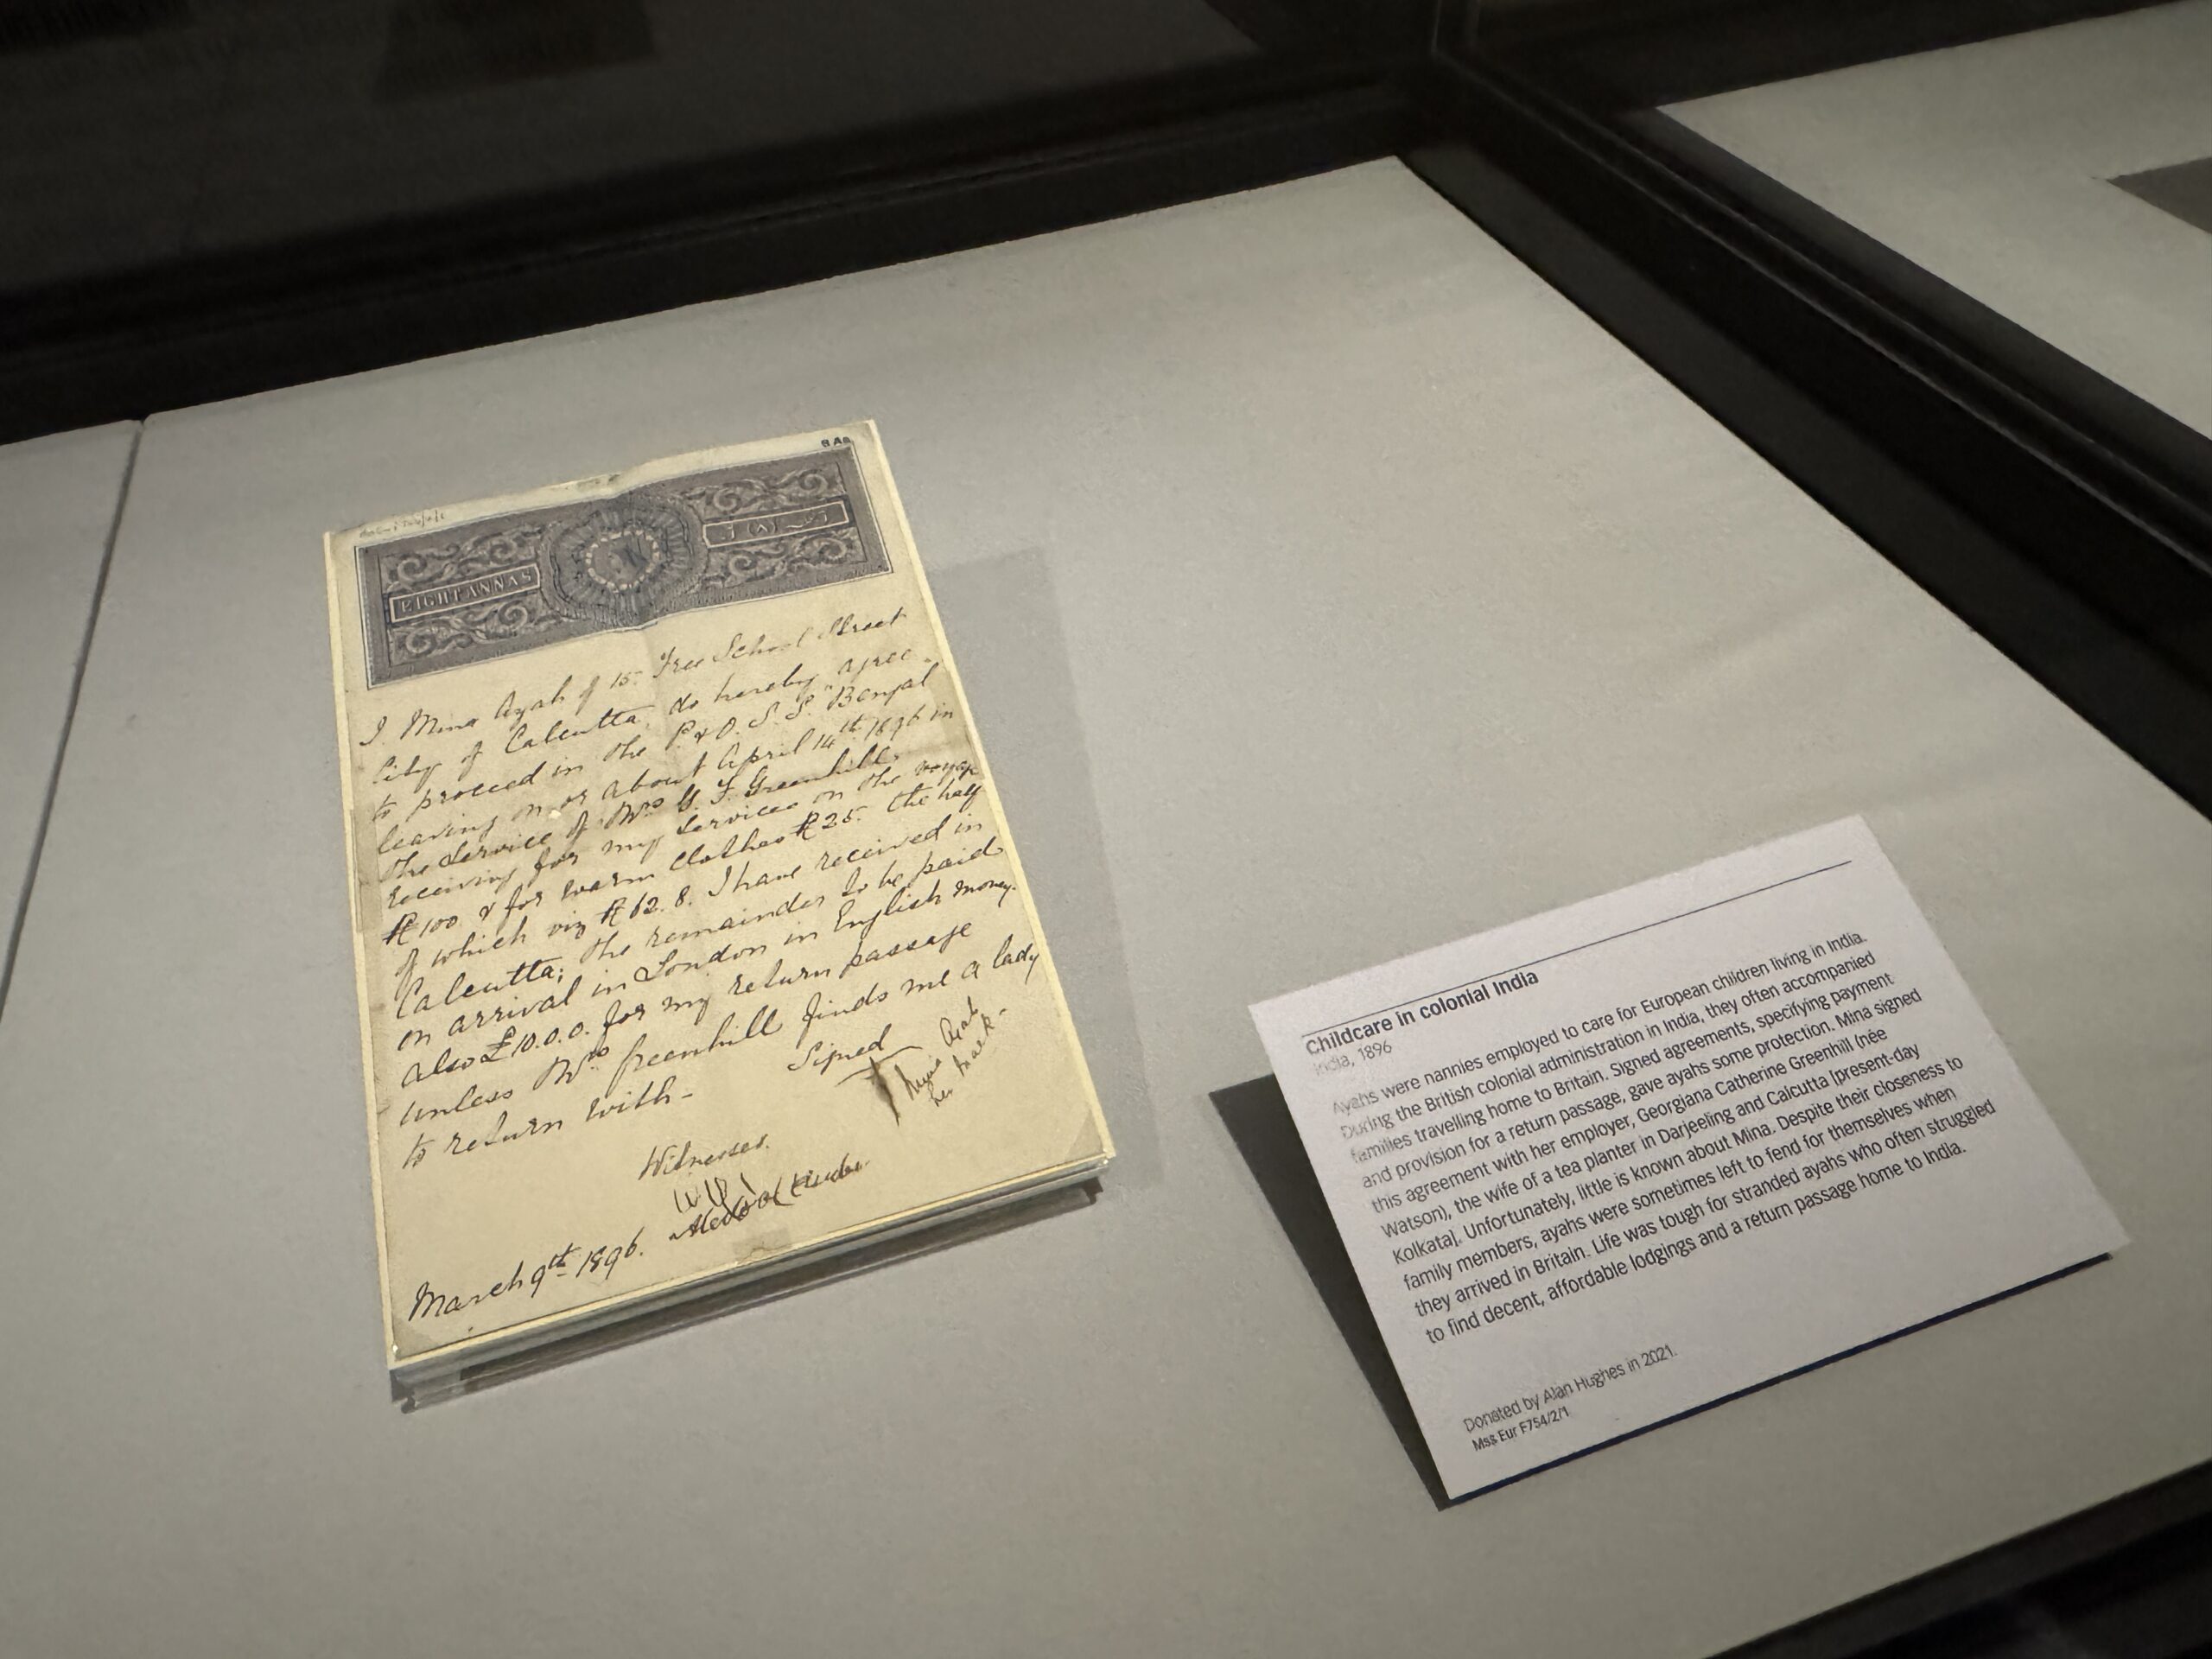 8 As.
EIGHT ANNAS
I Mina Ayah of 15 Free School Street
City of Calcutta, do hereby agree
to proceed in the P & O. S. S. "Bengal
leaving on or about April 14th 1896 in
the service of Mrs G. F. Greenhill,
receiving for my services on the voyage
R 100 & for warm clothes R 25. the half
of which viz R 62. 8. I have received in
Calcutta; the remainder to be paid
on arrival in London in English money.
also £10.0.0. for my return passage
unless Mrs Greenhill finds me a lady
to return with -
Signed
Mina Ayah
her mark -
Witnesses.
March 9th 1896.
Childcare in colonial India
India, 1896
Ayahs were nannies employed to care for European children living in India.
During the British colonial administration in India, they often accompanied
families travelling home to Britain. Signed agreements, specifying payment
and provision for a return passage, gave ayahs some protection. Mina signed
this agreement with her employer, Georgiana Catherine Greenhill (née
Watson), the wife of a tea planter in Darjeeling and Calcutta [present-day
Kolkata]. Unfortunately, little is known about Mina. Despite their closeness to
family members, ayahs were sometimes left to fend for themselves when
they arrived in Britain. Life was tough for stranded ayahs who often struggled
to find decent, affordable lodgings and a return passage home to India.
Donated by Alan Hughes in 2021.
Mss Eur F754/2/1